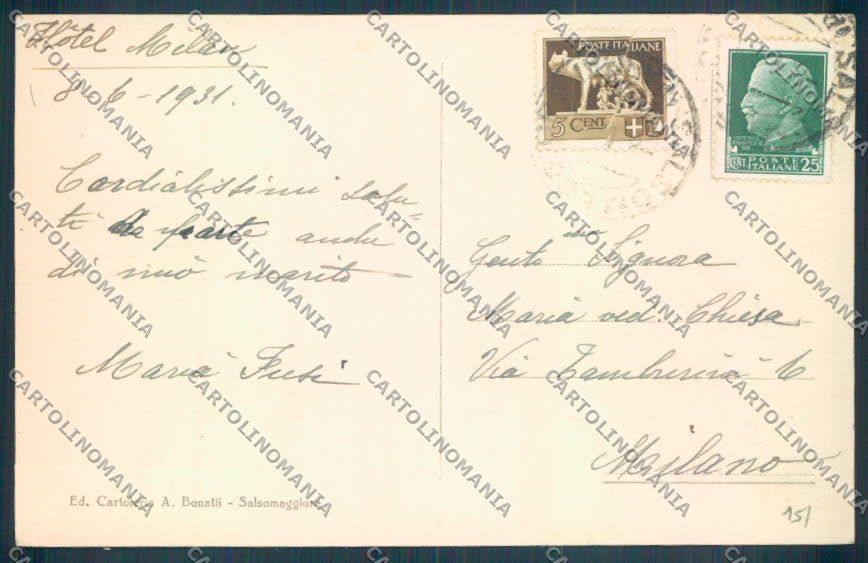 Hotel Milan
8-6-1931.
Cordialissimi salu=
ti da parte anche
di mio marito
Maria Fusi
Ed. Cartoleria A. Bonatti - Salsomaggiore
POSTE ITALIANE
5 CENT.
POSTE
CENT. ITALIANE 25
Gent.ma Signora
Maria ved. Chiesa
Via Tamburini 6
Milano
151
CARTOLINOMANIA